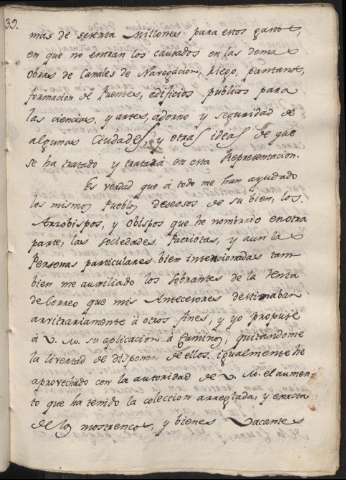 39.
mas de setenta Millones para estos gastos,
en que no entran los causados en las demas
Obras de Canales de Navegacion, Riego, pantanos,
formacion de Puentes, edificios publicos para
las ciencias, y artes, adorno y seguridad de
algunas Ciudades, y otras ideas de que
se ha tratado y tratará en esta Representacion.
Es verdad que á todo me han ayudado
los mismos Pueblos, deseosos de su bien, los
Arzobispos, y Obispos que he nombrado en otra
parte, las Sociedades Patriotas, y aun las
Personas particulares bien intencionadas tam
bien me ha auxiliado los Sobrantes de la Renta
de Correo que mis Antecesores destinaban
arvitrariamente á otros fines, y yo propuse
á V. M. su aplicacion á Caminos, quitandome
la livertad de disponer de ellos. igualmente he
aprovechado con la autoridad de V. M. el aumen
to que ha tenido la coleccion arreglada, y exacta
de los mostrencos, y bienes Vacantes